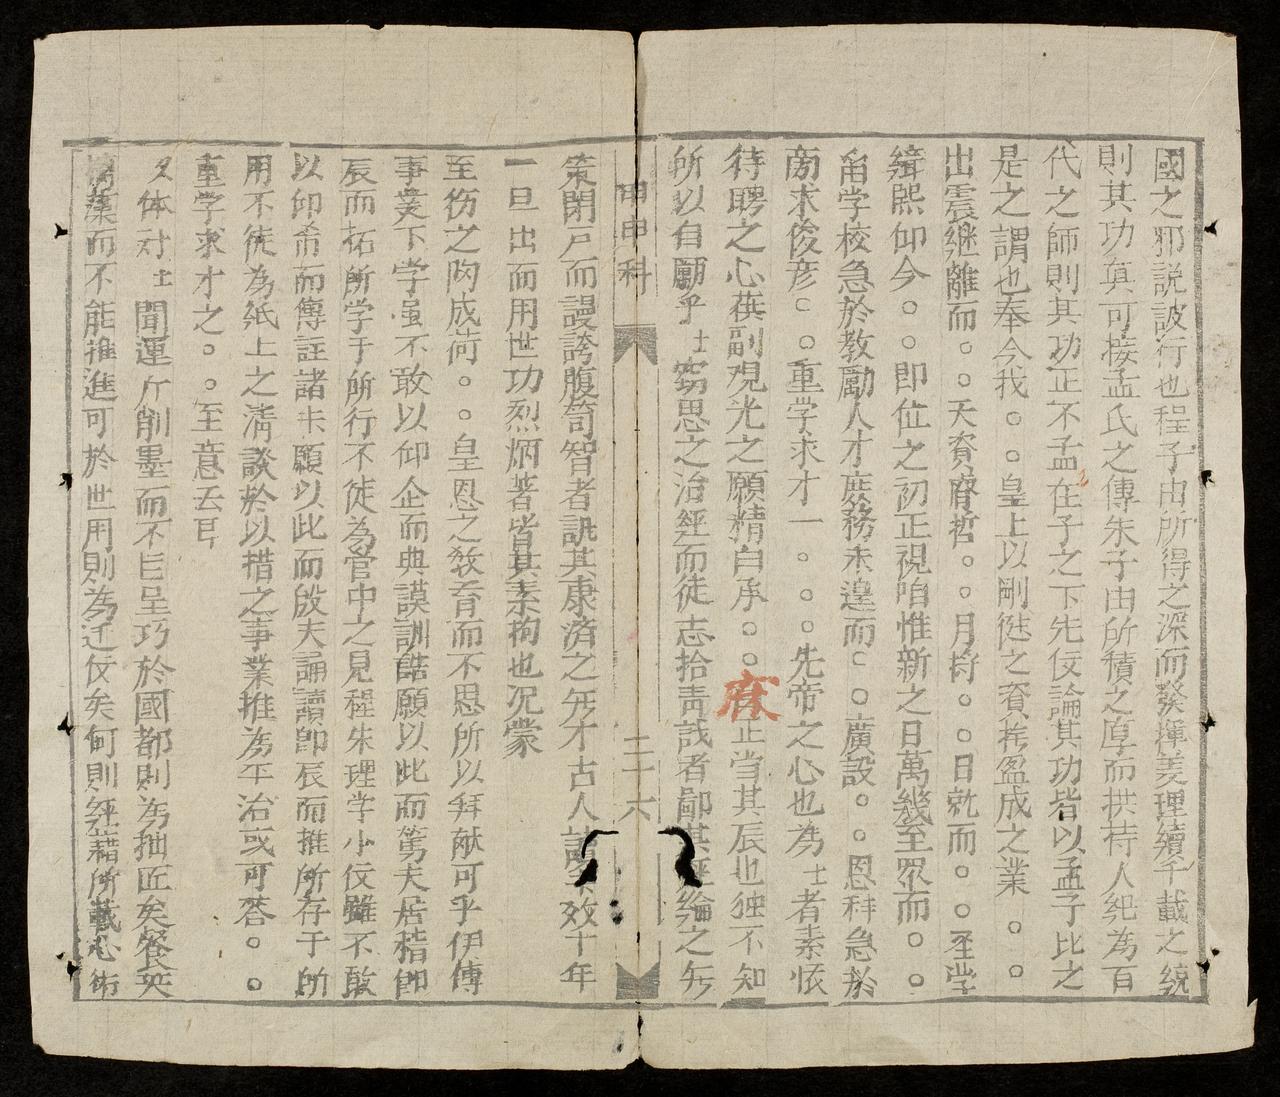 國之邪説詖行也程子由所得之深而發揮義理續千載之統
則其功眞可接孟氏之傳朱子由所積之厚而拱持人紀為百
代之師則其功正不孟在子之下先仅論其功皆以孟子比之
是之謂也奉今我○○皇上以剛徤之資撫盈成之業○○
出震継離而○○天資睿哲○○月将○○日就而○○圣学
緝熙仰今○○即位之初正視咱惟新之日萬幾至眾而○○
甾学校急於教勵人才庶務未遑而○○廣設○○恩拜急於
旁求俊彦○○重学求才一○○○先帝之心也為士者素懐
待聘之心葵副观光之願精白承○○庥正当其辰也独不知
所以自勵乎士窃思之治經而徒志拾青戝者鄙其經綸之无
甲申科
二十六
策閉戸而謾誇腹笥智者誚其康済之无才古人讀书效十年
一旦出而用世功烈炳著皆其素抱也况蒙
至彷之陶成荷○○皇恩之教育而不思所以拜献可乎伊傅
事業下学虽不敢以仰企而典謨訓誥願以此而篤夫居稽即
辰而柘所学于所行不徒為管中之見程朱理学小仅雖不敢
以仰希而傳註諸书願以此而啟夫誦讀即辰而推所存于所
用不徒為紙上之清談於以措之事業推為平治或可答○○
重学求才之○○至意云耳
文体对士聞運斤削墨而不能呈巧於國都則為拙匠矣餐英
摘藻而不能推進可於世用則為迂仅矣何則經藉所載心術